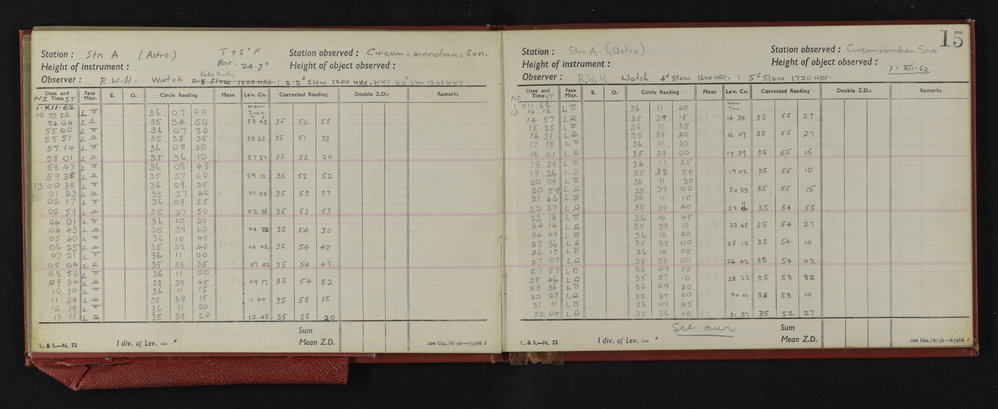 Station : Stn A (Astro.) T + 5° F Station observed : Circum-meridian. Sun.
Height of instrument : Bar. 24.3" Height of object observed :
Observer : R.W.H. Watch 1200 HRS. : 2.2s Slow 1200 HRS. WWV
Date and Time Face Micr. E. O. Circle Reading Mean Lev. Cn. Corrected Reading Double Z.D.s Remarks
NZST Mean Time
1·XII·62
12 53 32 L 36 07 00
54 04 L 35 34 50 53 43 35 50 55
55 00 L 36 07 30
55 51 L 35 35 35 55 25 35 51 33
57 14 L 36 08 30
58 01 L 35 36 10 57 37 35 52 20
58 47 L 36 08 45
59 38 L 35 37 00 59 12 35 52 52
13 00 38 L 36 09 35
01 23 L 35 37 40 01 00 35 53 37
02 17 L 36 09 55
02 59 L 35 37 50 02 38 35 53 53
04 01 L 36 10 20
04 43 L 35 38 40 04 22 35 54 30
05 40 L 36 10 45
06 25 L 35 38 40 06 02 35 54 42
07 21 L 36 11 00
08 04 L 35 38 35 07 42 35 54 47
08 58 L 36 11 00
09 34 L 35 38 45 09 17 35 54 52
10 30 L 36 11 15
11 29 L 35 39 15 11 00 35 55 15
12 19 L 36 11 20
13 11 L 35 39 20 12 45 35 55 20
Sum
L. & S.—N. 72 1 div. of Lev. = " Mean Z.D. 200 bks./6/56—65466 J
15
Station : Stn A (Astro) Station observed : Circummeridian Sun
Height of instrument : Height of object observed :
1·XII·62
Observer : R.W.H. Watch 4s Slow 1600 HRS. : 5s Slow 1720 HRS.
Date and Time Face Micr. E. O. Circle Reading Mean Lev. Cn. Corrected Reading Double Z.D.s Remarks
NZ ST Mean Time
1 XII.62
13 14 12 L 36 11 40
14 57 L 35 39 15 14 34 35 55 27
15 35 L 36 11 35
16 40 L 35 39 20 16 07 35 55 27
17 18 L 36 11 30
18 01 L 35 39 00 17 39 35 55 15
18 38 L 36 11 25
19 26 L 35 38 55 19 02 35 55 10
20 08 L 36 11 30
20 59 L 35 39 00 20 33 35 55 15
21 46 L 36 11 10
22 37 L 35 38 40 35 54 55
23 16 L 36 10 45
24 14 L 35 39 10 23 45 35 54 27
24 48 L 36 10 20
25 36 L 35 38 00 25 12 35 54 10
26 17 L 36 10 05
27 07 L 35 38 00 26 42 35 54 02
27 59 L 36 09 55
28 46 L 35 37 10 28 22 35 53 32
29 36 L 36 09 20
30 27 L 35 37 00 30 01 35 53 10
31 11 L 36 09 45
32 04 L 35 36 10 31 37 35 52 27
See over Sum
L. & S.—N. 72 1 div. of Lev. = " Mean Z.D. 200 bks./6/56—65466 J